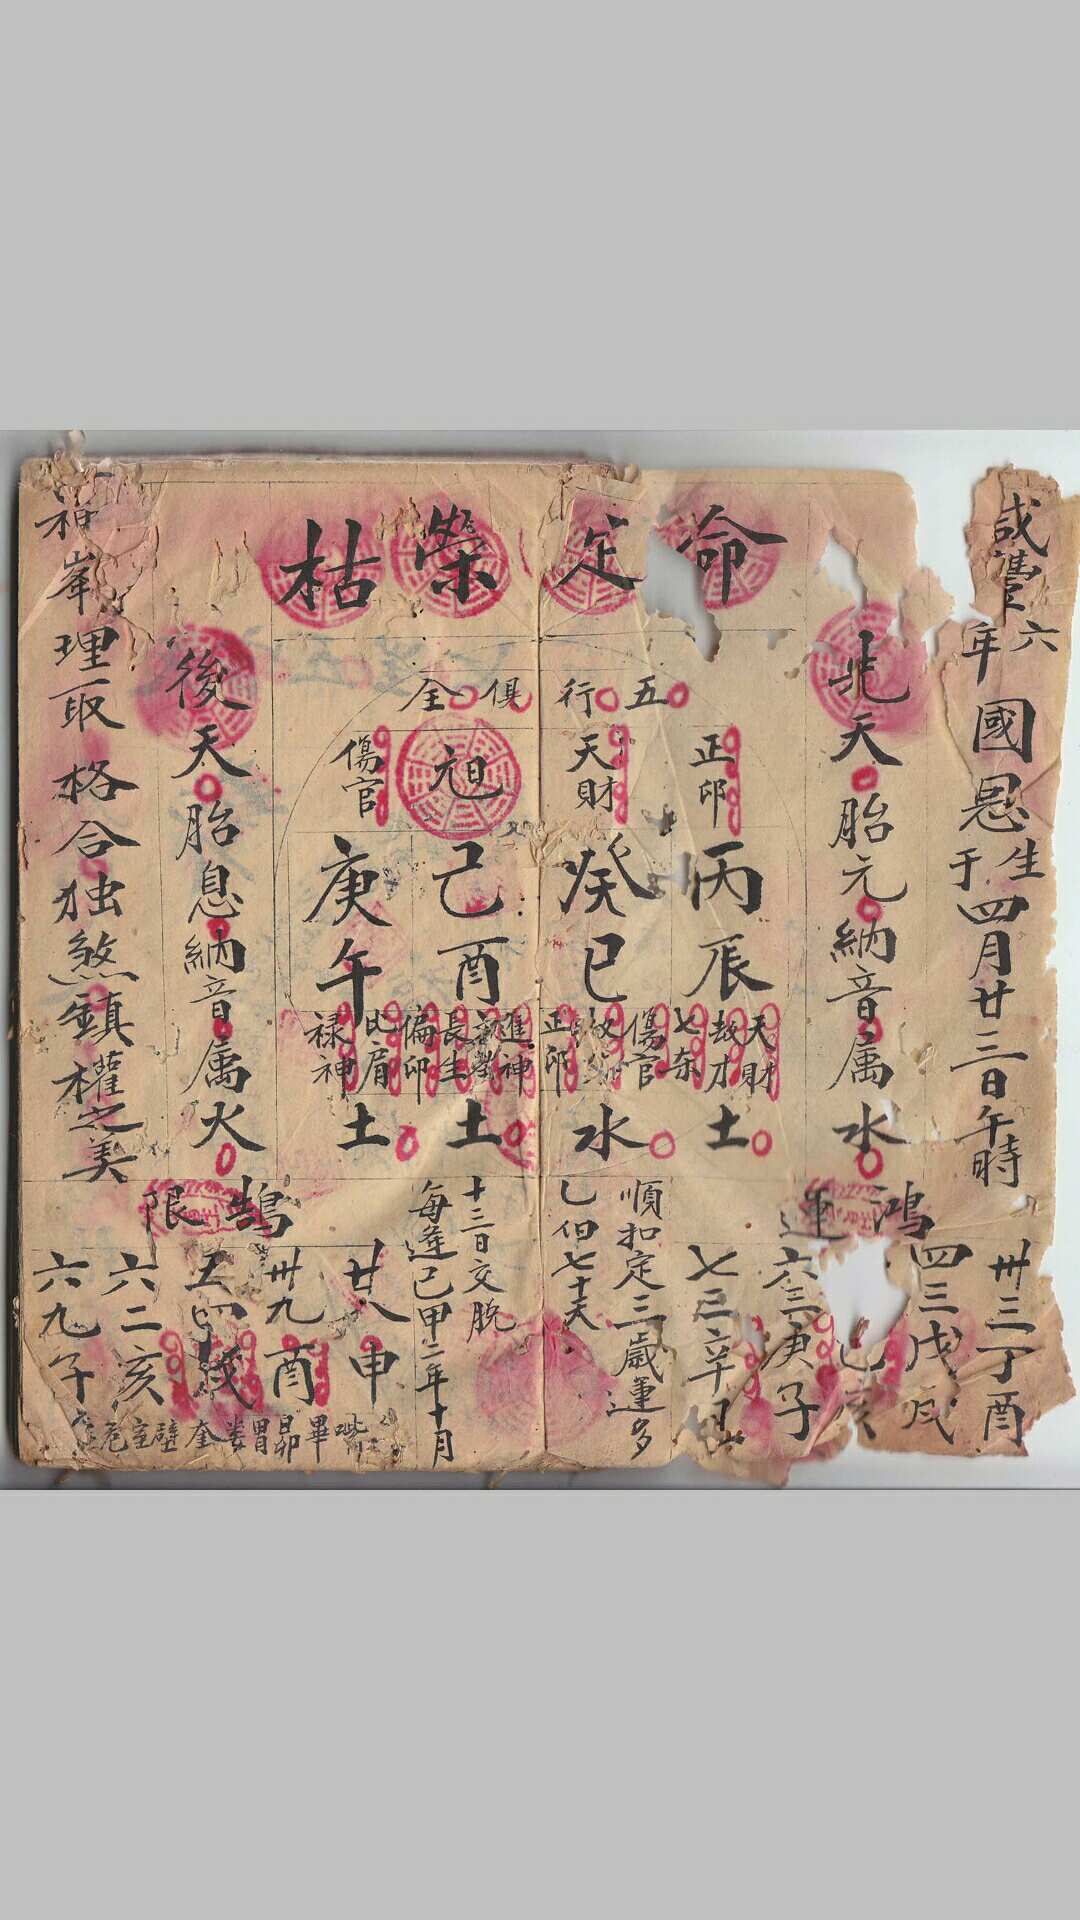 咸豐六
年國恩生
于四月廿三日午時
命定榮枯
先天胎元納音属水
五行俱全
正印
天財
旭
傷官
丙辰
癸巳
己酉
庚午
天財
劫才
七杀
傷官
正印
進神
長生
偏印
比肩
禄神
土
水
土
土
後天胎息納音属火
峯理取格合独煞鎮權之美
鴻運
卅三丁酉
四三戊戌
六三庚子
七三辛丑
順扣定三歲運多
乙但七十天
十三日交脫
每逢己甲二年十月
鵠限
廿八申
卅九酉
五四戌
六二亥
六九子
畢昴胃婁奎壁室危